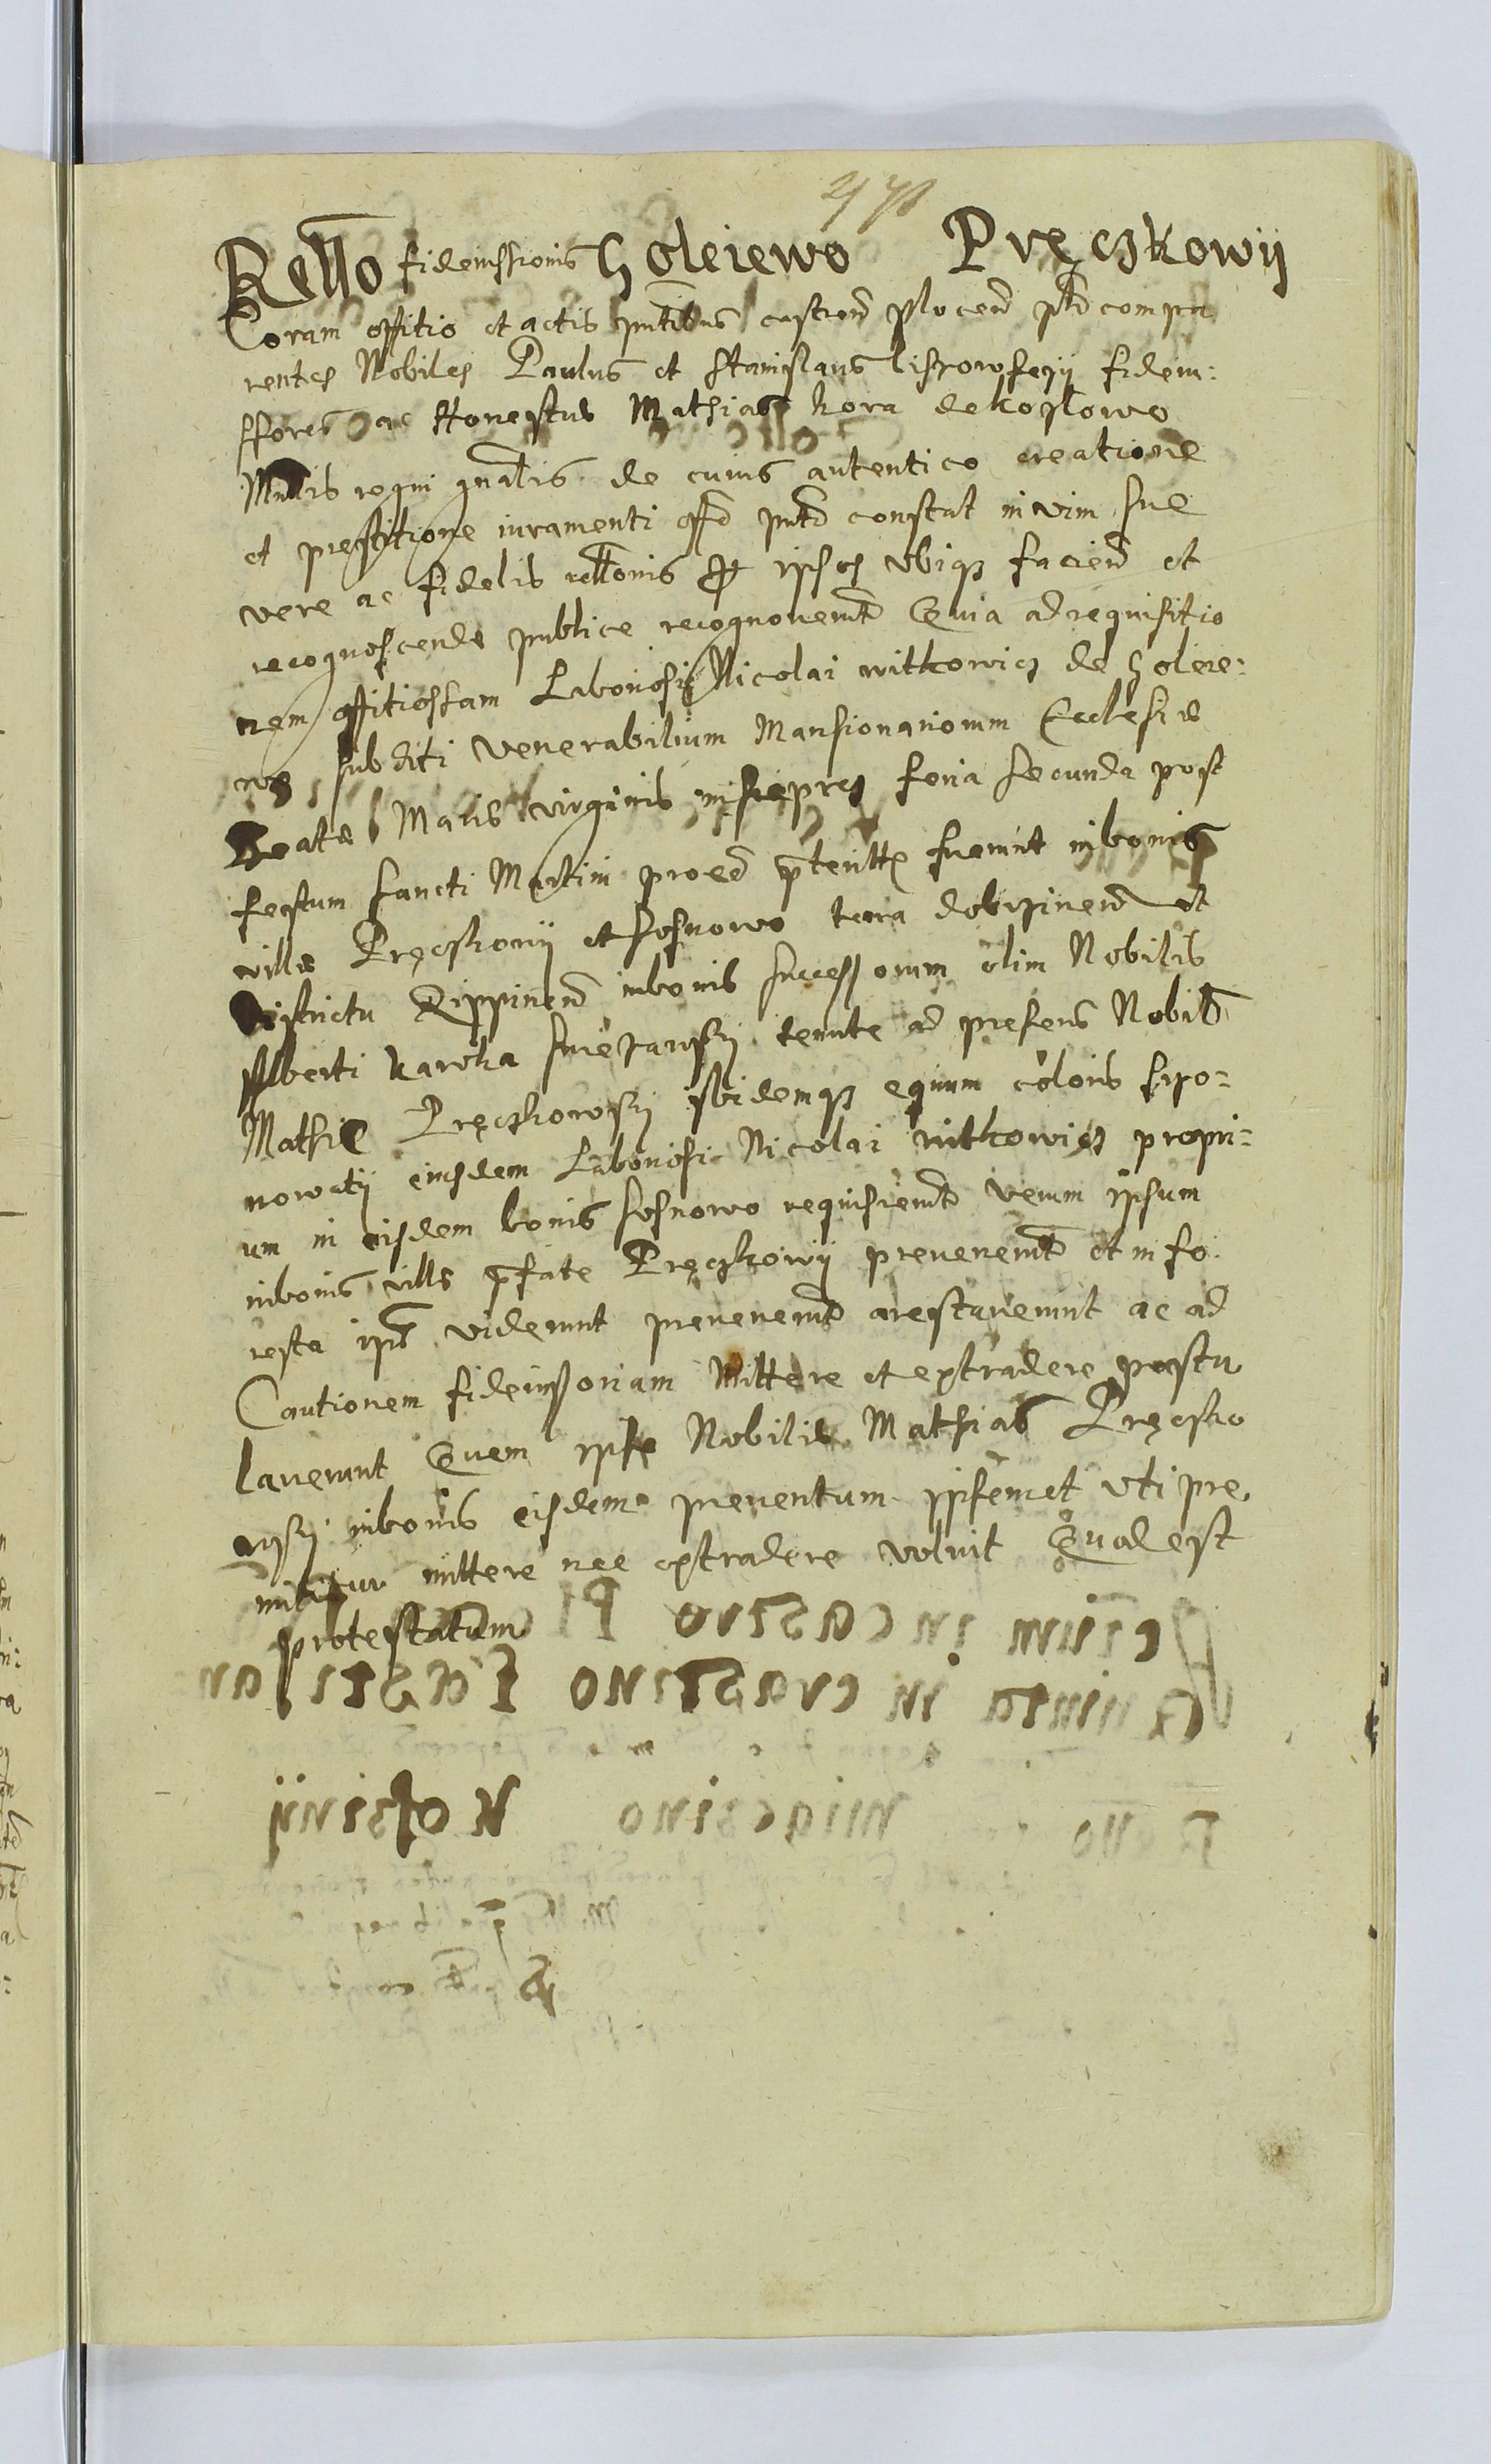 Rello fideiussionis Goleiewo Pręczkowij
Coram offitio et actis pntibus castren Plocen ptd compa
rentes Nobiles Paulus et Stanislaus fideiu:
ssores ac Honestus Mathias kora de
Mnlis regni gnalis de cuius autentico creatione
et prestitione iuramenti offo pntd constat in vim sue
vere ac fidelis rellonis p ipsos vbiqz faciend et
recognoscende publice recognouerunt Quia ad requisitio
nem offitiosam Laboriosi Nicolai witkowicz de Goleie:
wo subditi venerabilium Mansionariorum Ecclesie
Beate Marie virginis in feria secunda post
festum sancti Martini prox pteritta fuerunt in bonis
ville Pręczkowij et sosnowo terra dobrzinen et
districtu Rippinen in bonis successorum olim Nobilis
Alberti karwka tente ad presens Nobil
Mathie Pręczkowskj ibidemqz equum coloris
eiusdem Laboriosi Nicolai witkowicz propri:
um in eisdem bonis sosnowo requisierunt verum ipsum
in bonis ville pfate Pręczkowij preuenerunt et in fo
resta ipm viderunt preuenerunt arestauerunt ac ad
Cautionem fideiussoriam Mittere et extradere postu
lauerunt Quem ipse Nobilis Mathias Pręczko
wskj in bonis eisdem preuentum ipsemet vti pre
mittitur mittere nec extradere voluit Quod est
protestatum